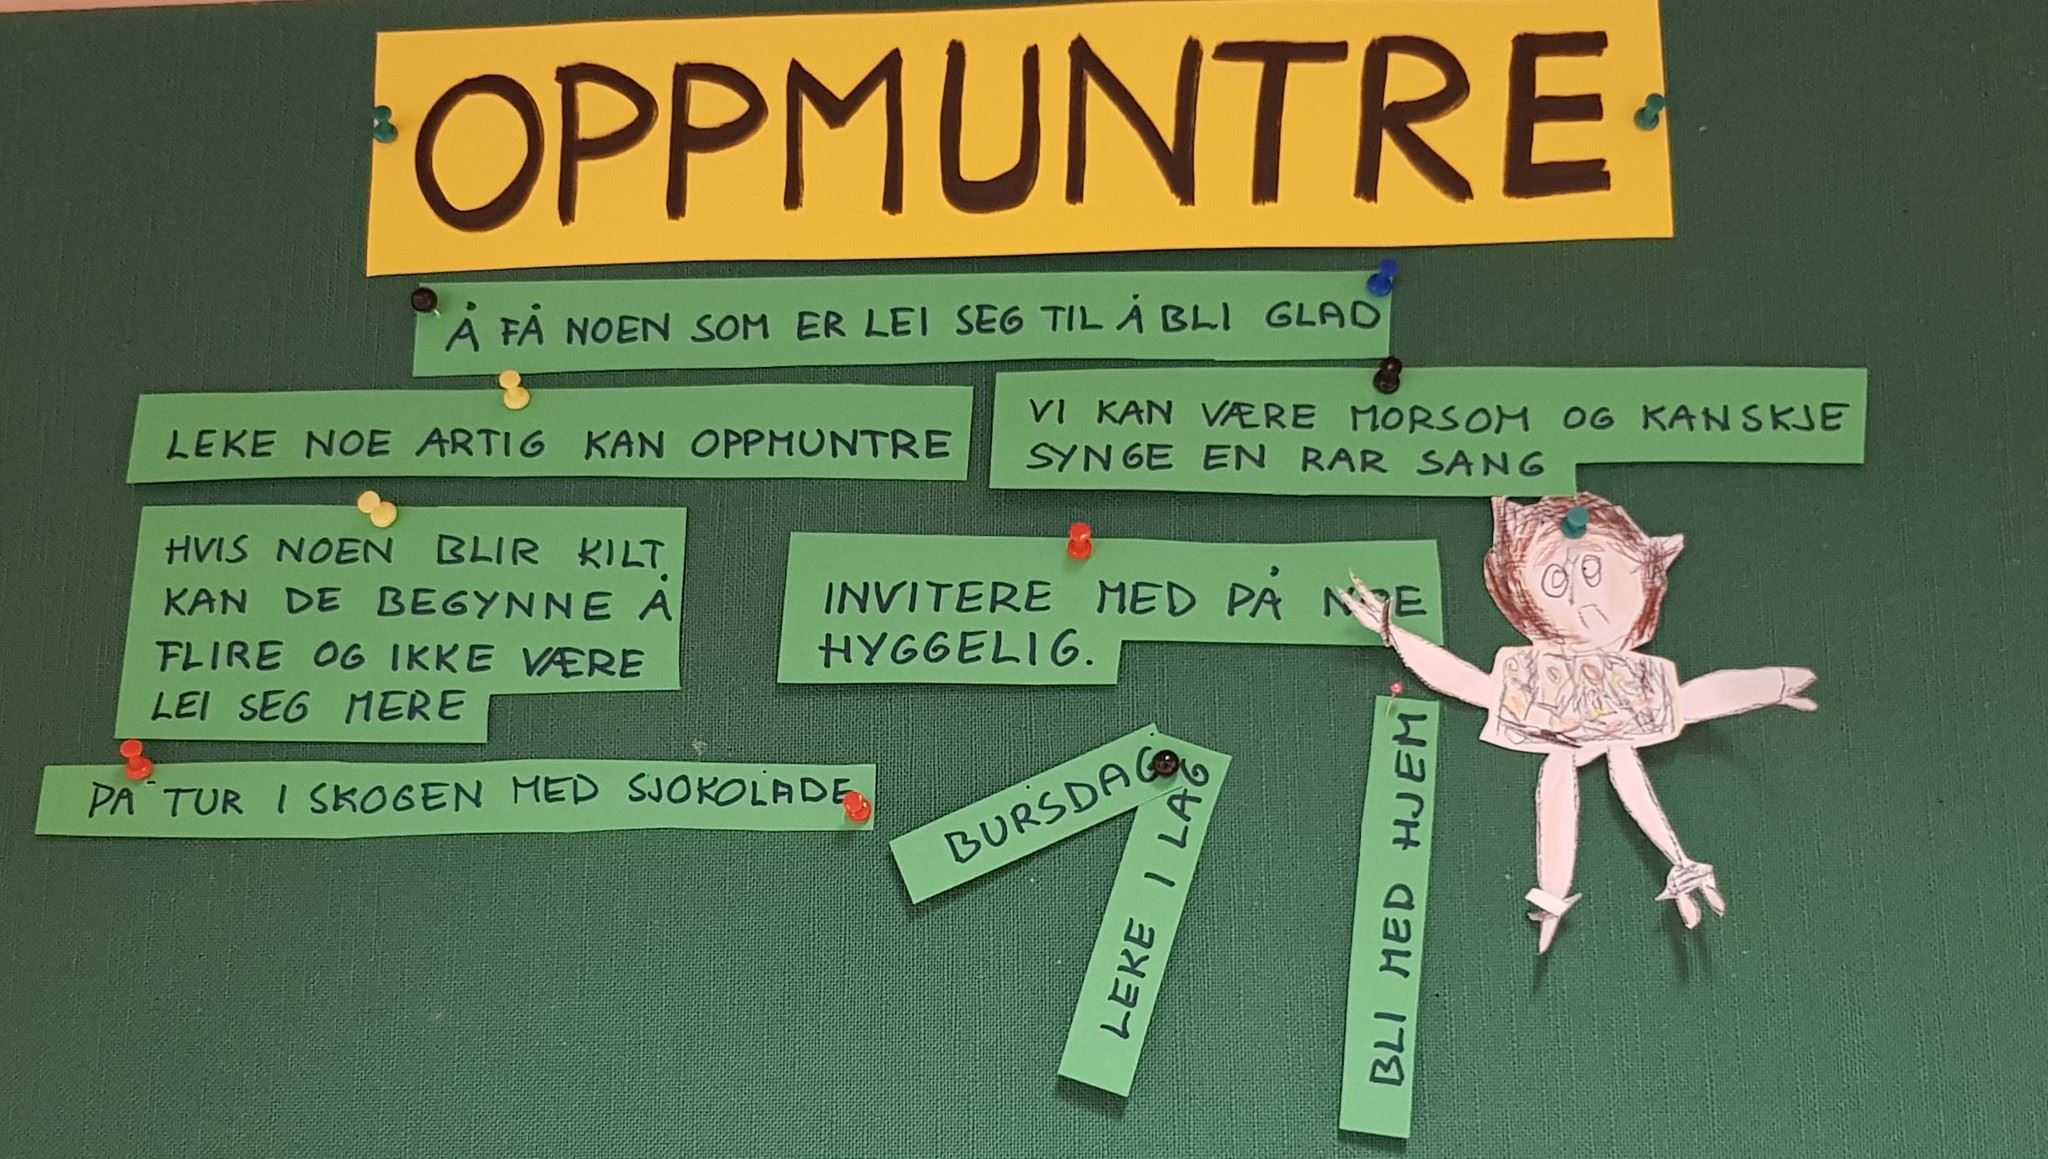 OPPMUNTRE
Å FÅ NOEN SOM ER LEI SEG TIL Å BLI GLAD
LEKE NOE ARTIG KAN OPPMUNTRE
VI KAN VÆRE MORSOM OG KANSKJE
SYNGE EN RAR SANG
HVIS NOEN BLIR KILT
KAN DE BEGYNNE Å
FLIRE OG IKKE VÆRE
LEI SEG MERE
INVITERE MED PÅ NOE
HYGGELIG.
PÅ TUR I SKOGEN MED SJOKOLADE
BURSDAG
LEKE I LAG
BLI MED HJEM